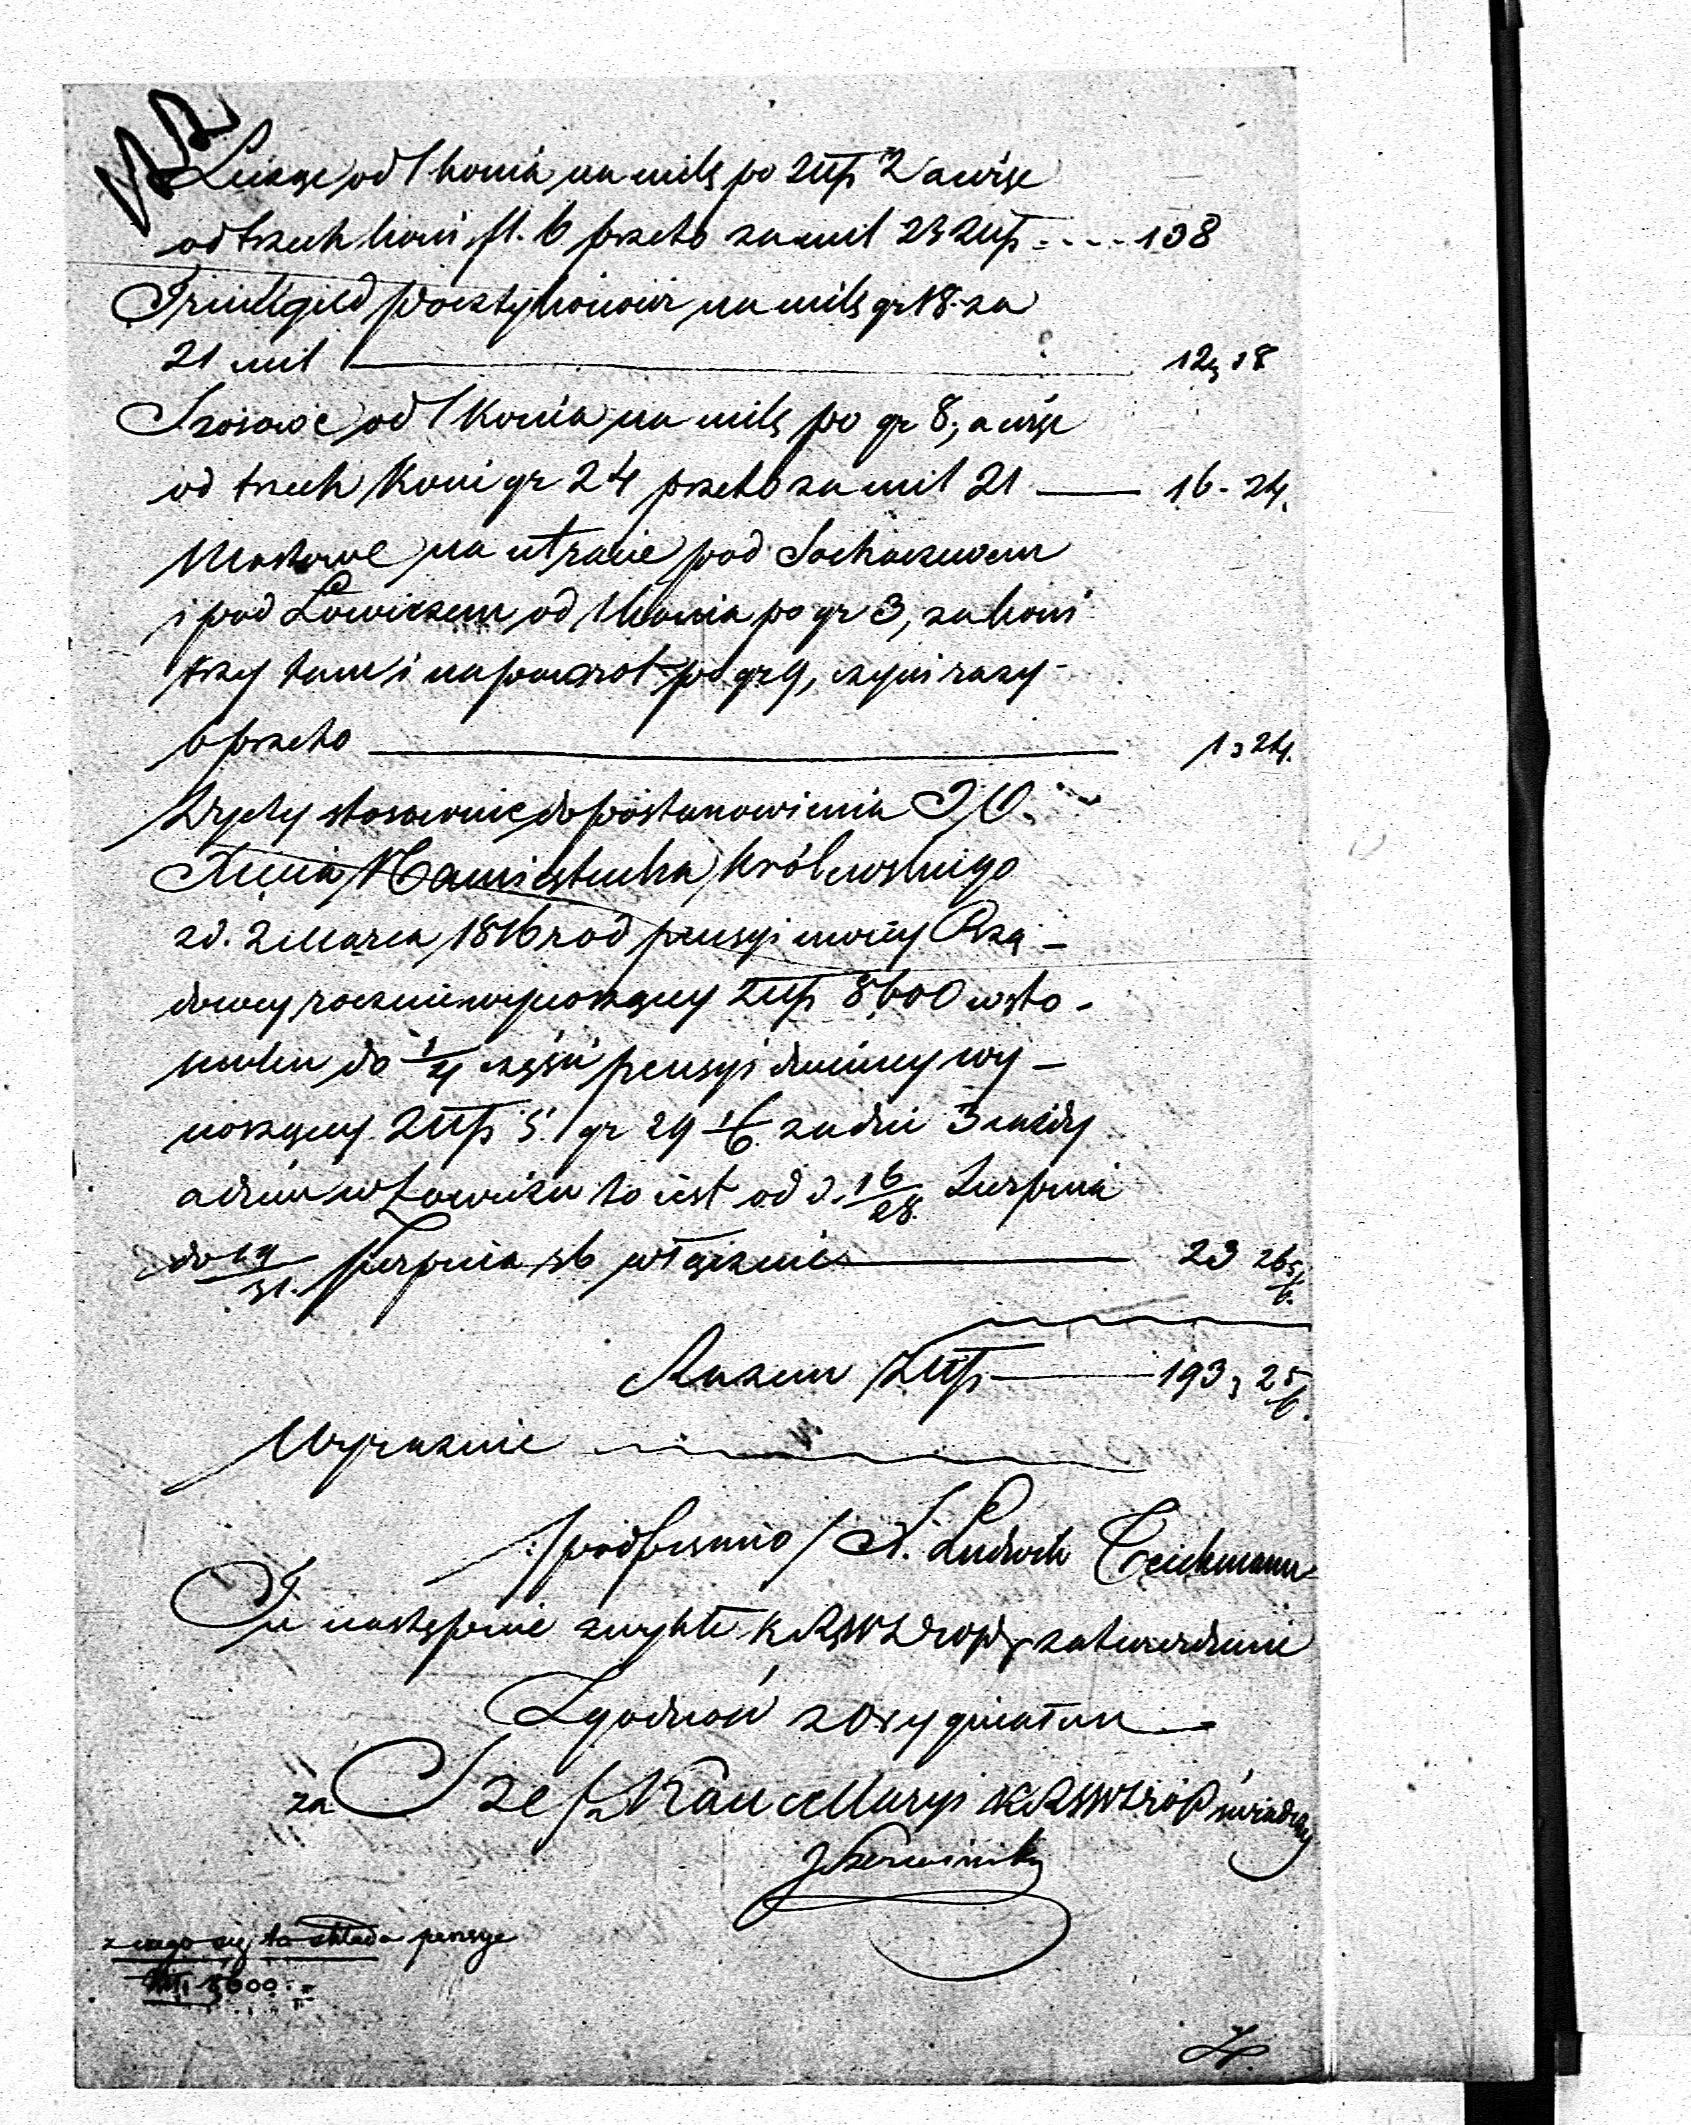 Licząc od 1 konia na milę po złtp 2 a więc
od trzech koni fl. 6 przeto za mil 23 złtp .... 138
Trinkgeld pocztylionowi na milę gr 18. za
21 mil 12, 18
Szosowe od 1 konia na milę po gr 8, a więc
od trzech koni gr 24 przeto za mil 21 16 - 24.
Mostowe na utracie pod Sochaczewem
i pod Łowiczem od 1 konia po gr 3, za koni
trzy tam i napowrot po gr 9, czyni razy
6 przeto 1, 24.
Dyety stosownie do postanowienia JO.
Xięcia Namiestnika Królewskiego
z d. 2 Marca 1816 r od pensyi moiey Rzą-
dowey rocznie wynoszącey złtp 8,600 w sto-
sunku do 1/4 części pensyi dzienney wy-
noszącey złtp 5. gr 29 1/6 za dni 3
w Łowiczu to iest od d. 16/28. Sierpnia
do 19/31. Sierpnia rb włącznie 23 26 5/6.
Razem złtp 193, 25/6.
Wyraźnie
/podpisano/ Ludwik Teichmann
Tu następuie zwykłe KRSWDiOP zatwierdzenie
Zgodność z Oryginałem
za Szef Kancellaryi KRSWDiOP świadczy
z czego się ta składa pensya